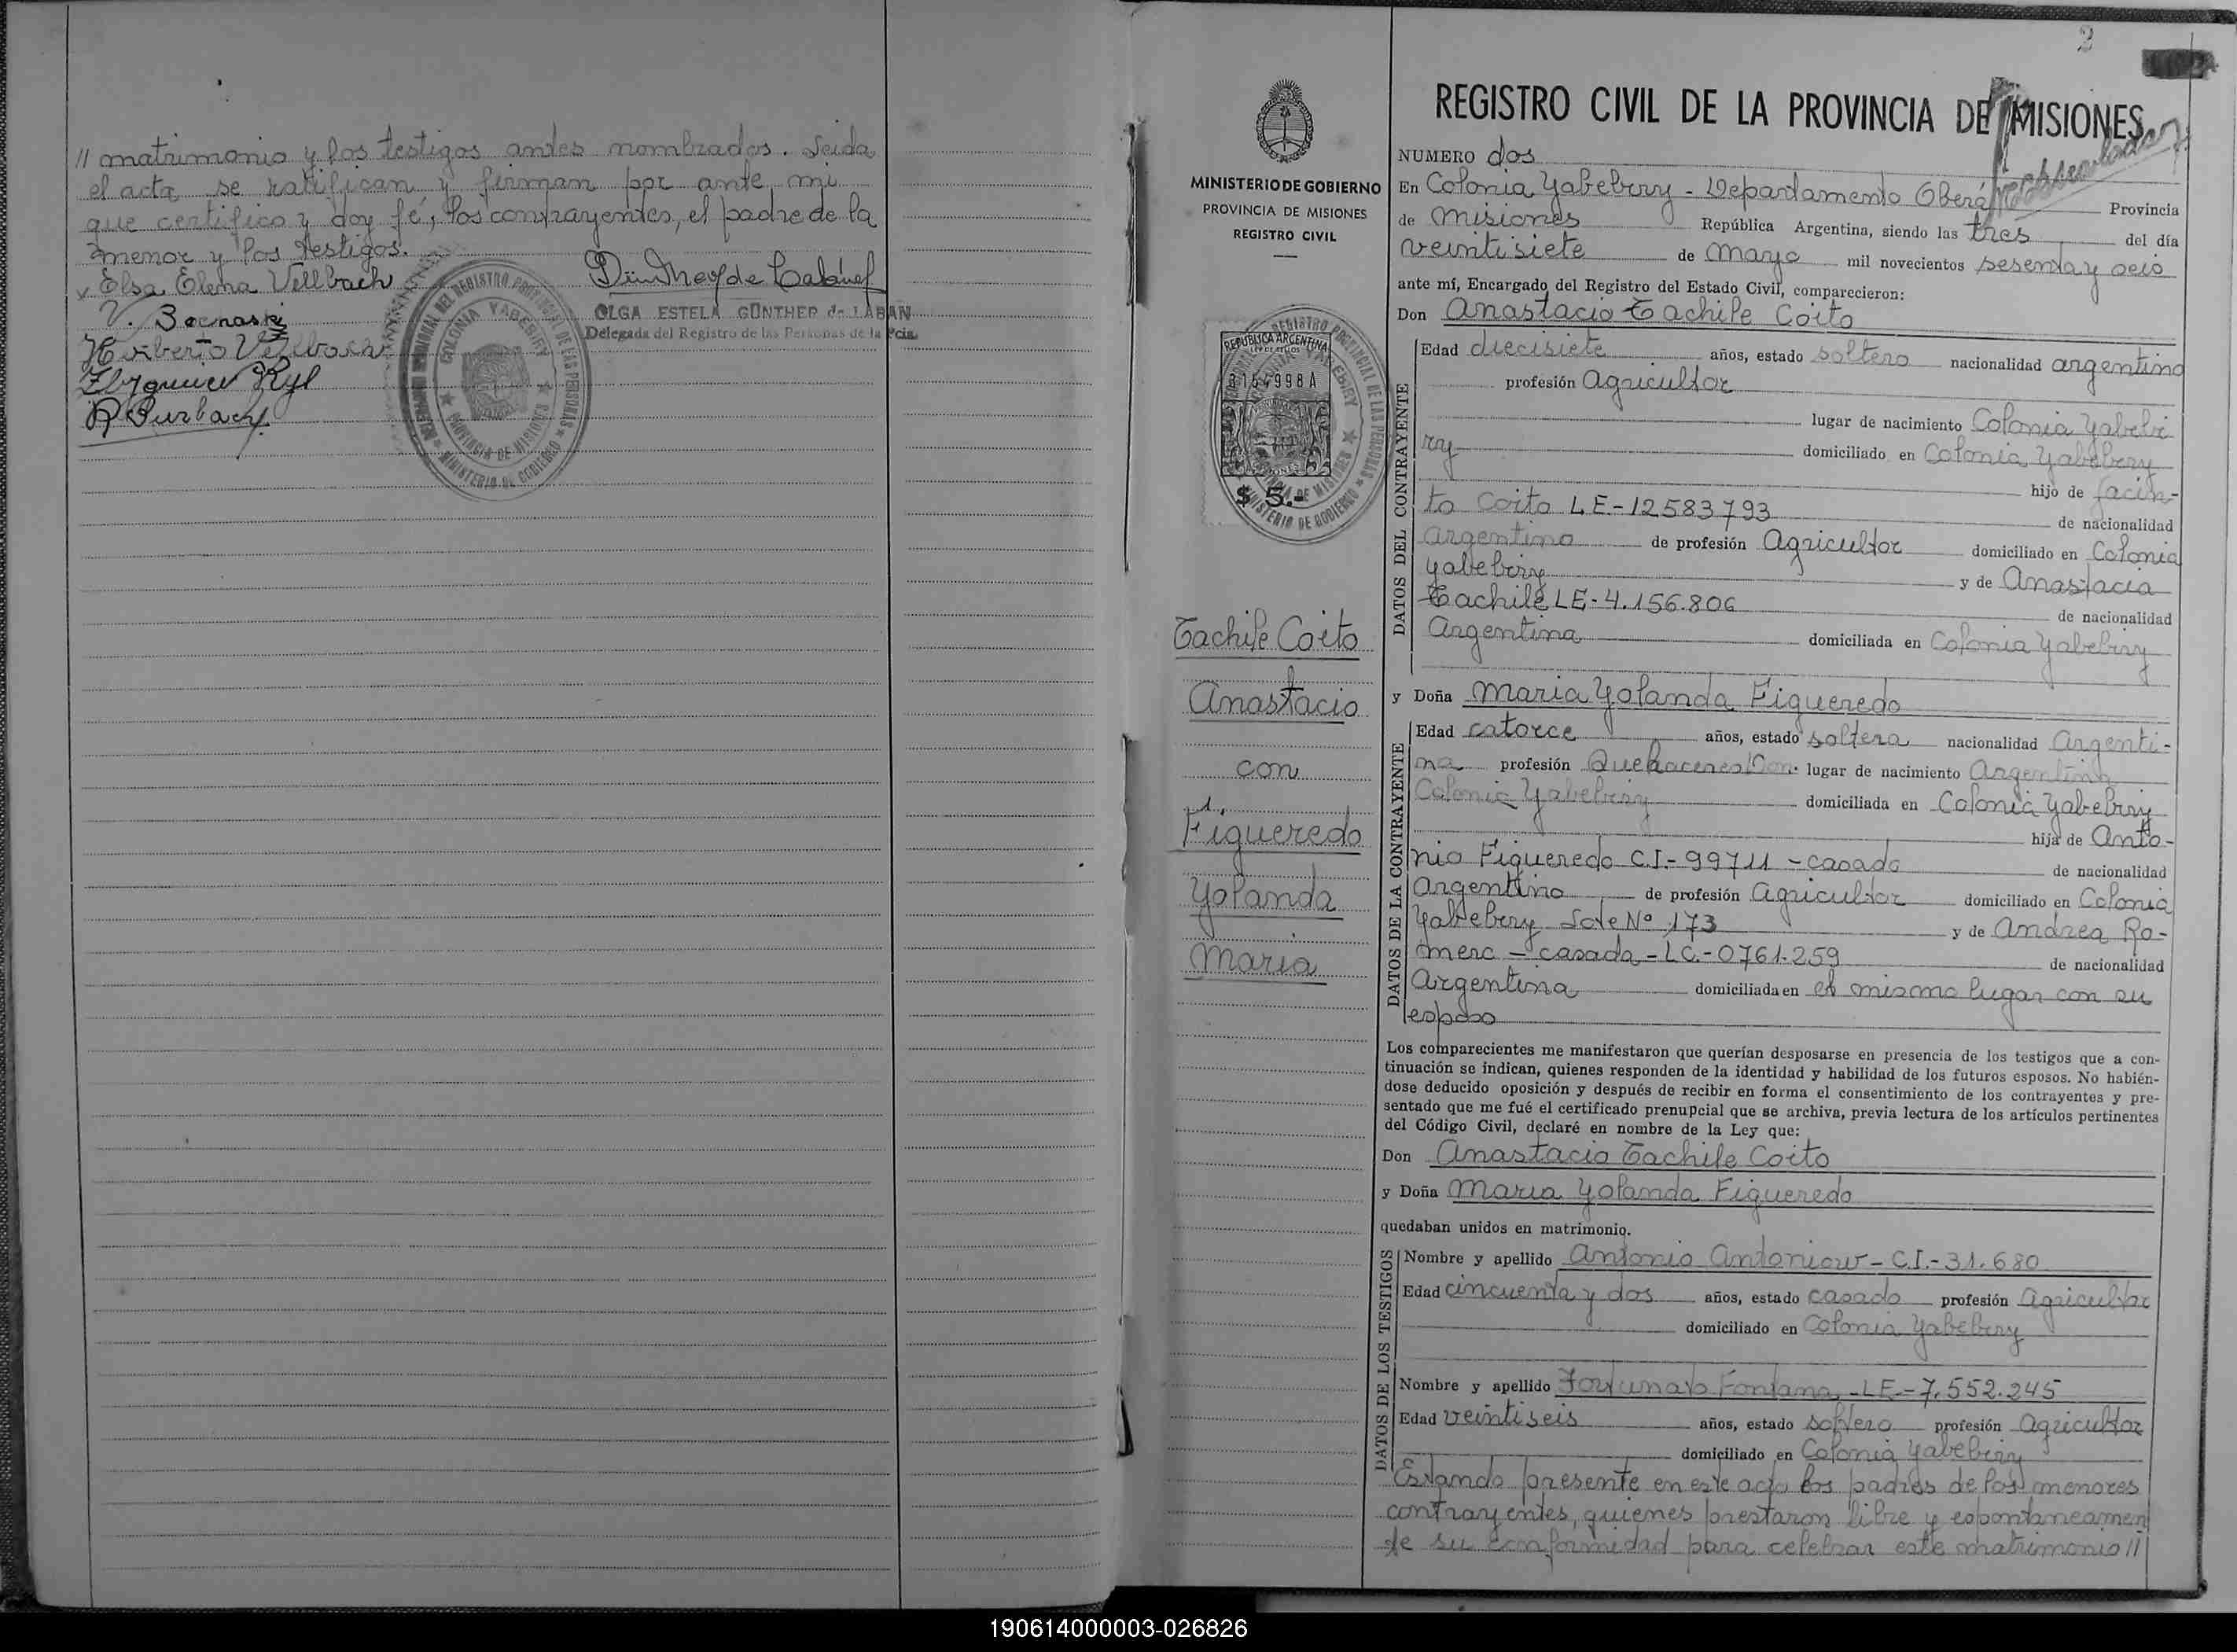 // matrimonio y los testigos antes nombrados. Leida
el acta se ratifican y firman por ante mi
que certifico y doy fé, los contrayentes, el padre de la
menor y los testigos.
Elsa Elena Vellbach
V. Bocnaski
OLGA ESTELA GÜNTHER de LABAN
Delegada del Registro de las Personas de la Pcia.
REGISTRO PROVINCIAL DE LAS PERSONAS
COLONIA YABEBIRY
PROVINCIA DE MISIONES
MINISTERIO DE GOBIERNO
2
MINISTERIO DE GOBIERNO
PROVINCIA DE MISIONES
REGISTRO CIVIL
REPUBLICA ARGENTINA
LEY DE SELLOS
154998A
$ 5.-
Tachile Coito
Anastacio
con
Figueredo
Yolanda
Maria
REGISTRO CIVIL DE LA PROVINCIA DE MISIONES
NUMERO dos
En Colonia Yabebery - Departamento Oberá Provincia
de Misiones República Argentina, siendo las tres del día
veintisiete de Mayo mil novecientos sesenta y seis
ante mí, Encargado del Registro del Estado Civil, comparecieron:
Don Anastacio Tachile Coito
DATOS DEL CONTRAYENTE
Edad diecisiete años, estado soltero nacionalidad argentino
profesión Agricultor
lugar de nacimiento Colonia Yabebi
ry domiciliado en Colonia Yabebery
hijo de Jacin-
to Coito LE-12583793 de nacionalidad
Argentino de profesión Agricultor domiciliado en Colonia
Yabebiry y de Anastacia
Tachile LE-4.156.806 de nacionalidad
Argentina domiciliada en Colonia Yabebiry
y Doña Maria Yolanda Figueredo
DATOS DE LA CONTRAYENTE
Edad catorce años, estado soltera nacionalidad Argenti-
na profesión Quehaceres Dom. lugar de nacimiento Argentina
Colonia Yabebiry domiciliada en Colonia Yabebiry
hija de Anto-
nio Figueredo C.I.-99711 - casado de nacionalidad
Argentino de profesión Agricultor domiciliado en Colonia
Yabebery Lote Nº 173 y de Andrea Ro-
mero - casada - LC.-0761.259 de nacionalidad
Argentina domiciliada en el mismo lugar con su
esposo
Los comparecientes me manifestaron que querían desposarse en presencia de los testigos que a con-
tinuación se indican, quienes responden de la identidad y habilidad de los futuros esposos. No habién-
dose deducido oposición y después de recibir en forma el consentimiento de los contrayentes y pre-
sentado que me fué el certificado prenupcial que se archiva, previa lectura de los artículos pertinentes
del Código Civil, declaré en nombre de la Ley que:
Don Anastacio Tachile Coito
y Doña Maria Yolanda Figueredo
quedaban unidos en matrimonio.
DATOS DE LOS TESTIGOS
Nombre y apellido Antonio Antoniow - C.I.-31.680
Edad cincuenta y dos años, estado casado profesión Agricultor
domiciliado en Colonia Yabebery
Nombre y apellido Fortunato Fontana - LE-7.552.245
Edad veintiseis años, estado soltero profesión Agricultor
domiciliado en Colonia Yabebery
Estando presente en este acto los padres de los menores
contrayentes, quienes prestaron libre y espontaneamen
te su conformidad para celebrar este matrimonio //
190614000003-026826